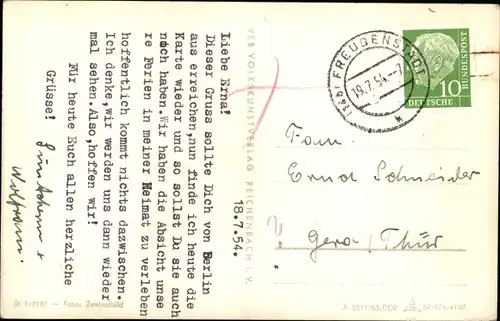 18.7.54.
Liebe Erna!
Dieser Gruss sollte Dich von Berlin
aus erreichen,nun finde ich heute die
Karte wieder und so sollst Du sie auch
noch haben.Wir haben die Absicht unse
re Ferien in meiner Heimat zu verleben
hoffentlich kommt nichts dazwischen.
Ich denke,wir werden uns dann wieder
mal sehen.Also,hoffen wir!
Für heute Euch allen herzliche
Grüsse!
Wolfram.
VEB VOLKSKUNSTVERLAG REICHENBACH I. V.
FREUDENSTADT
19.7.54.-7
10
DEUTSCHE
BUNDESPOST
Fam.
Erna Schneider
Gera/Thür
St 1/7187 - Foto: Zentralbild
A 5211/53/DDR